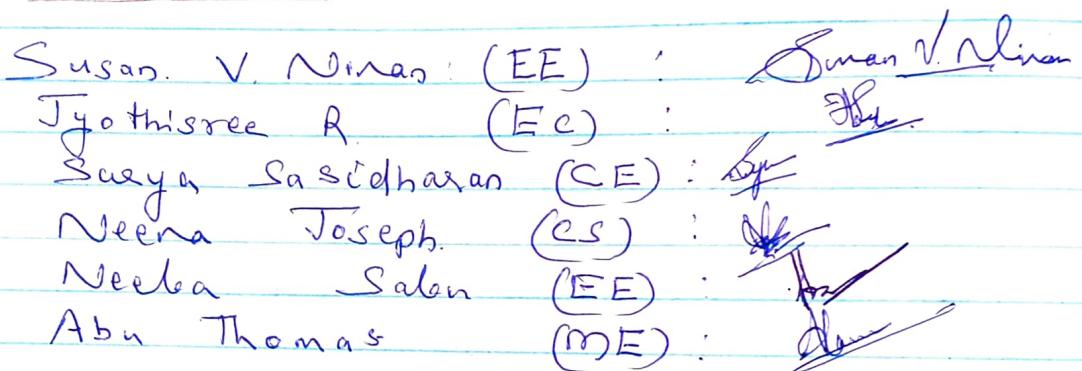 Susan. V. Ninan: (EE) : Susan V. Ninan
Jyothisree R (EC) :
Surya Sasidharan (CE) :
Neena Joseph. (CS) :
Neeba Salon (EE) :
Abu Thomas (ME) :